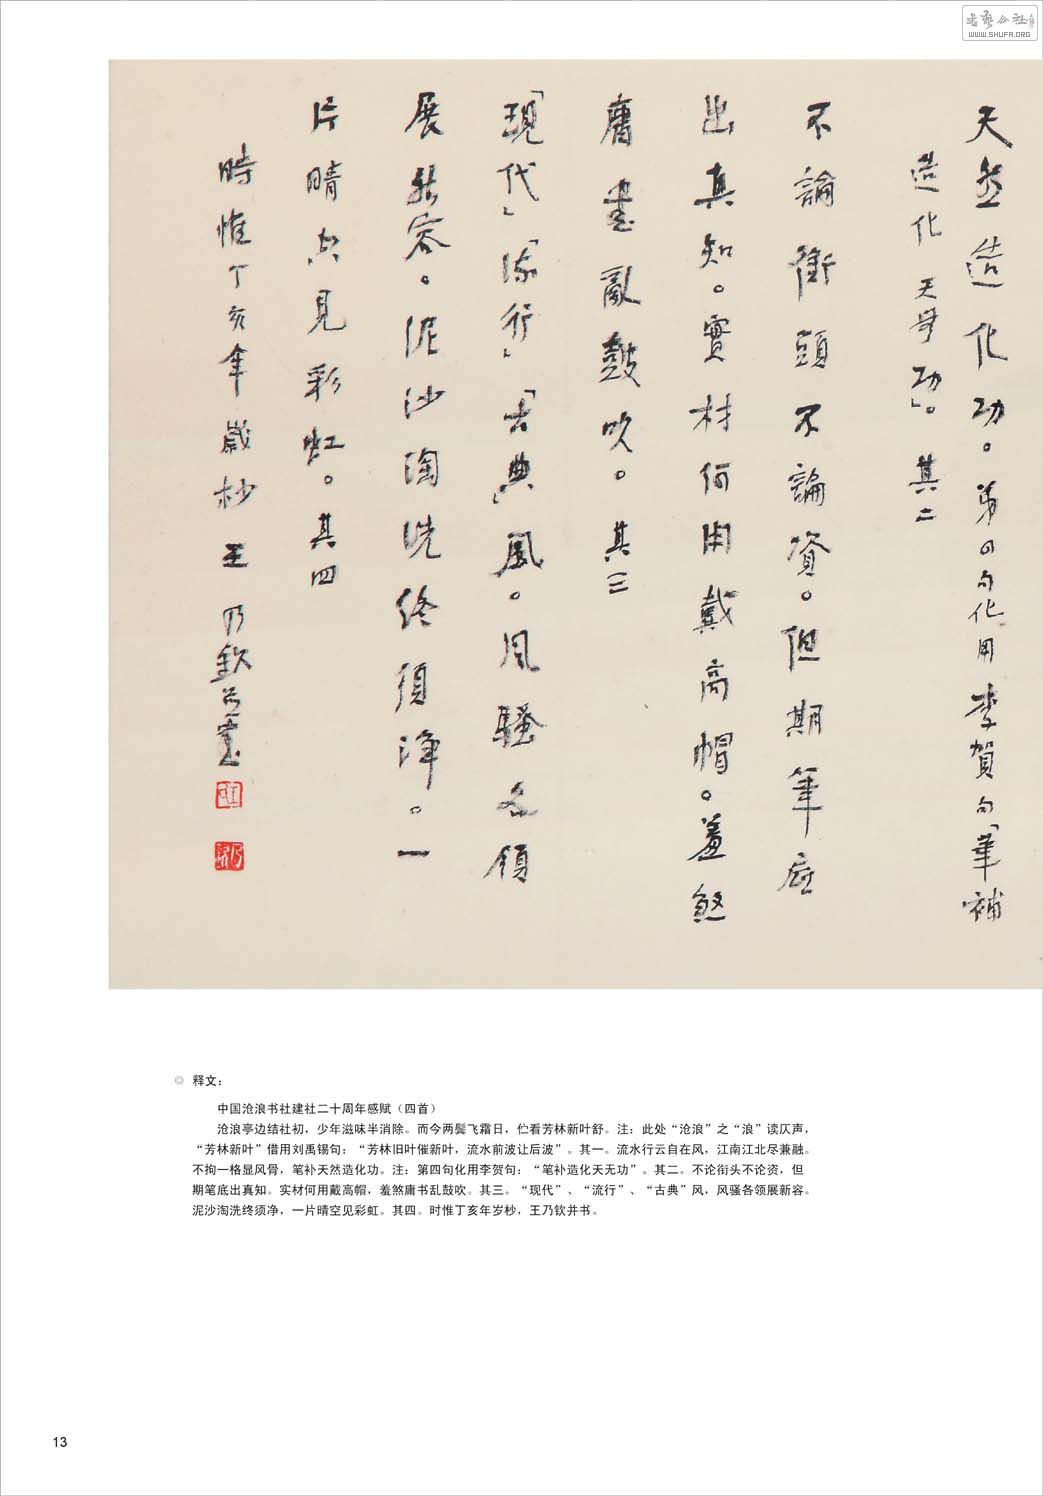 书艺公社
WWW.SHUFA.ORG
天然造化功。第四句化用李賀句「筆補
造化天無功」。其二
不論銜頭不論資。但期筆底
出真知。實材何用戴高帽。羞煞
庸書亂鼓吹。其三
「現代」「流行」「古典」風。風騷各領
展新容。泥沙淘洗終須淨。一
片晴空見彩虹。其四
時惟丁亥年歲杪王乃欽并書
◎ 释文：
中国沧浪书社建社二十周年感赋（四首）
沧浪亭边结社初，少年滋味半消除。而今两鬓飞霜日，伫看芳林新叶舒。注：此处“沧浪”之“浪”读仄声，
“芳林新叶”借用刘禹锡句：“芳林旧叶催新叶，流水前波让后波”。其一。流水行云自在风，江南江北尽兼融。
不拘一格显风骨，笔补天然造化功。注：第四句化用李贺句：“笔补造化天无功”。其二。不论衔头不论资，但
期笔底出真知。实材何用戴高帽，羞煞庸书乱鼓吹。其三。“现代”、“流行”、“古典”风，风骚各领展新容。
泥沙淘洗终须净，一片晴空见彩虹。其四。时惟丁亥年岁杪，王乃钦并书。
13